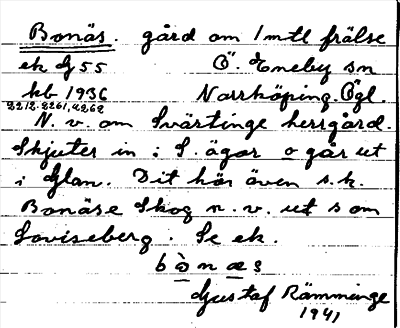 Bonäs. gård om 1 mtl frälse
ek dj 55 Ö. Eneby sn
hb 1936 Norrköping. Ögl.
2212. 2261, 4262
N. v. om Svärtinge herrgård.
Skjuter in i S. ägor o går ut
i Glan. Dit hör även s. k.
Bonäse Skog n. v. ut s om
Loviseberg. Se ek.
b ò n æ s
Gustaf Rämminge
1941